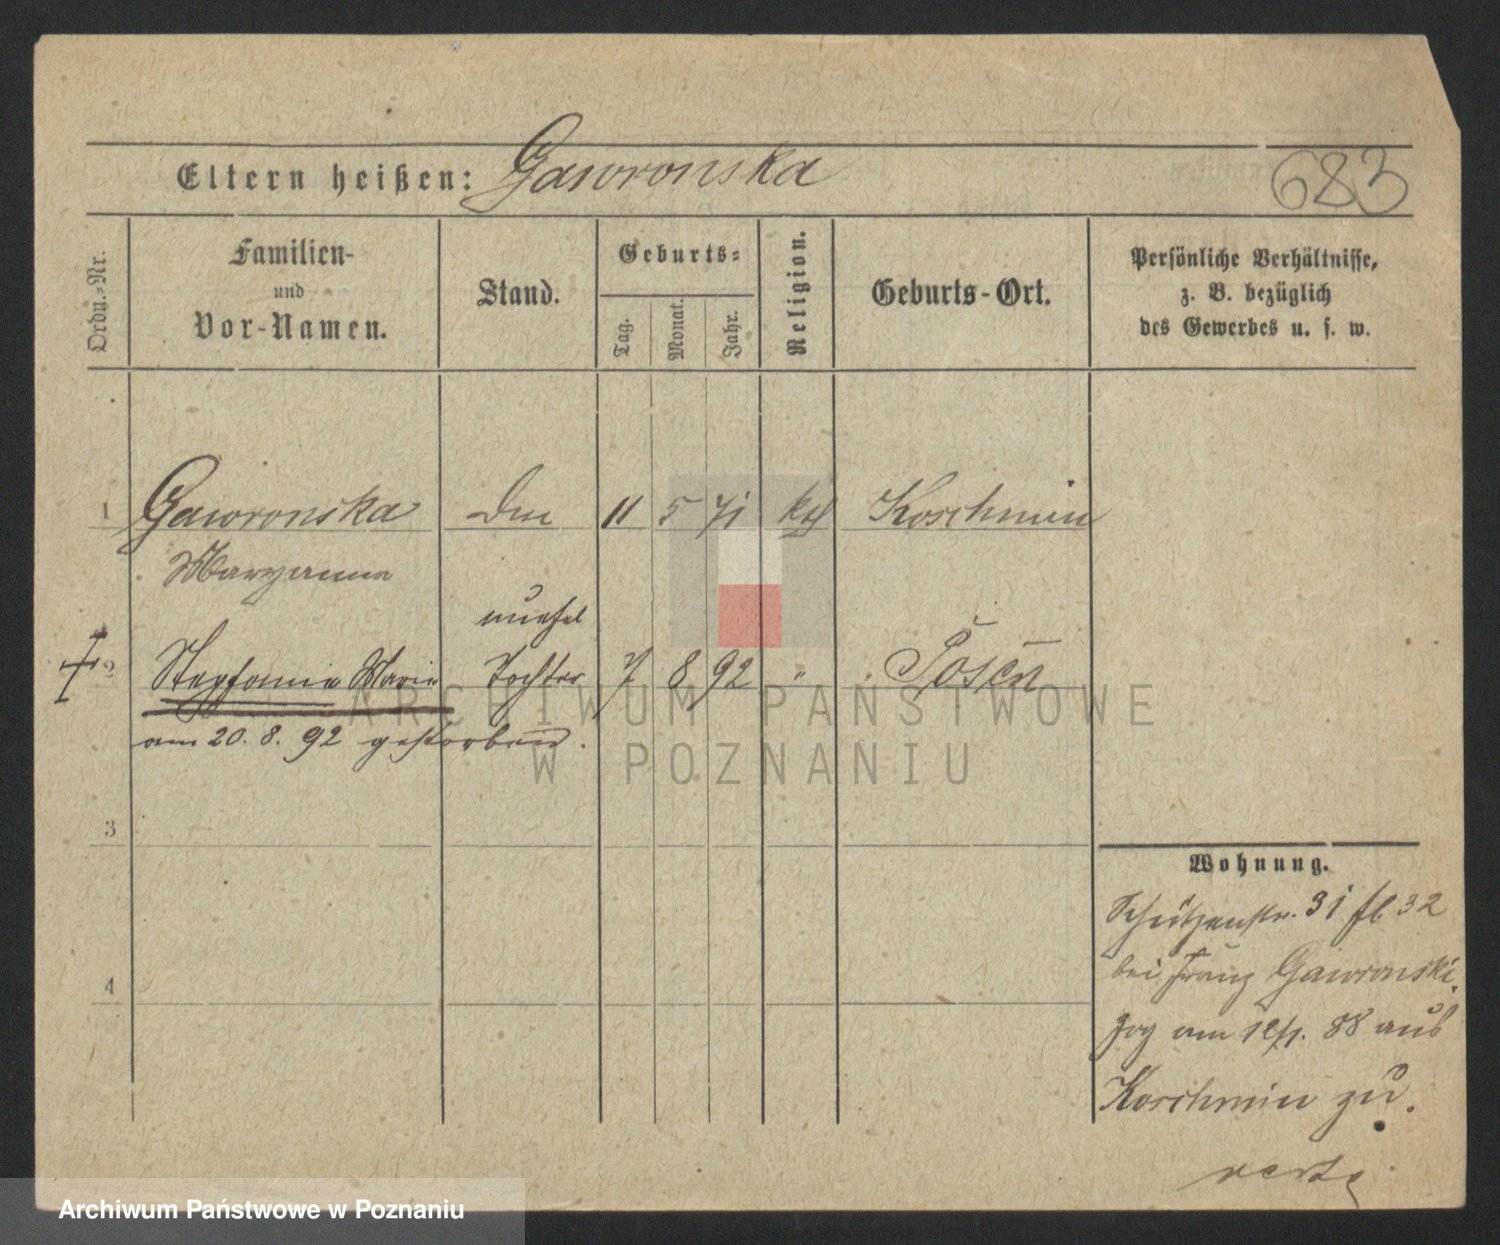 Eltern heißen: Gawronska
683
Ordn.-Nr.
Familien-
und
Vor-Namen.
Stand.
Geburts-
Tag.
Monat.
Jahr.
Religion.
Geburts-Ort.
Persönliche Verhältnisse,
z. B. bezüglich
des Gewerbes u. s. w.
1 Gawronska 11 5 71 kath Koschmin
Maryanna
unehel
2 Stephania Marie Tochter 7 8 92 " Posen
am 20. 8. 92 gestorben.
3
4
Wohnung.
Schützenstr. 31 32
bei Franz Gawronski.
Zog am 12/1. 88 aus
Koschmin zu.
verte
ARCHIWUM PAŃSTWOWE
W POZNANIU
Archiwum Państwowe w Poznaniu